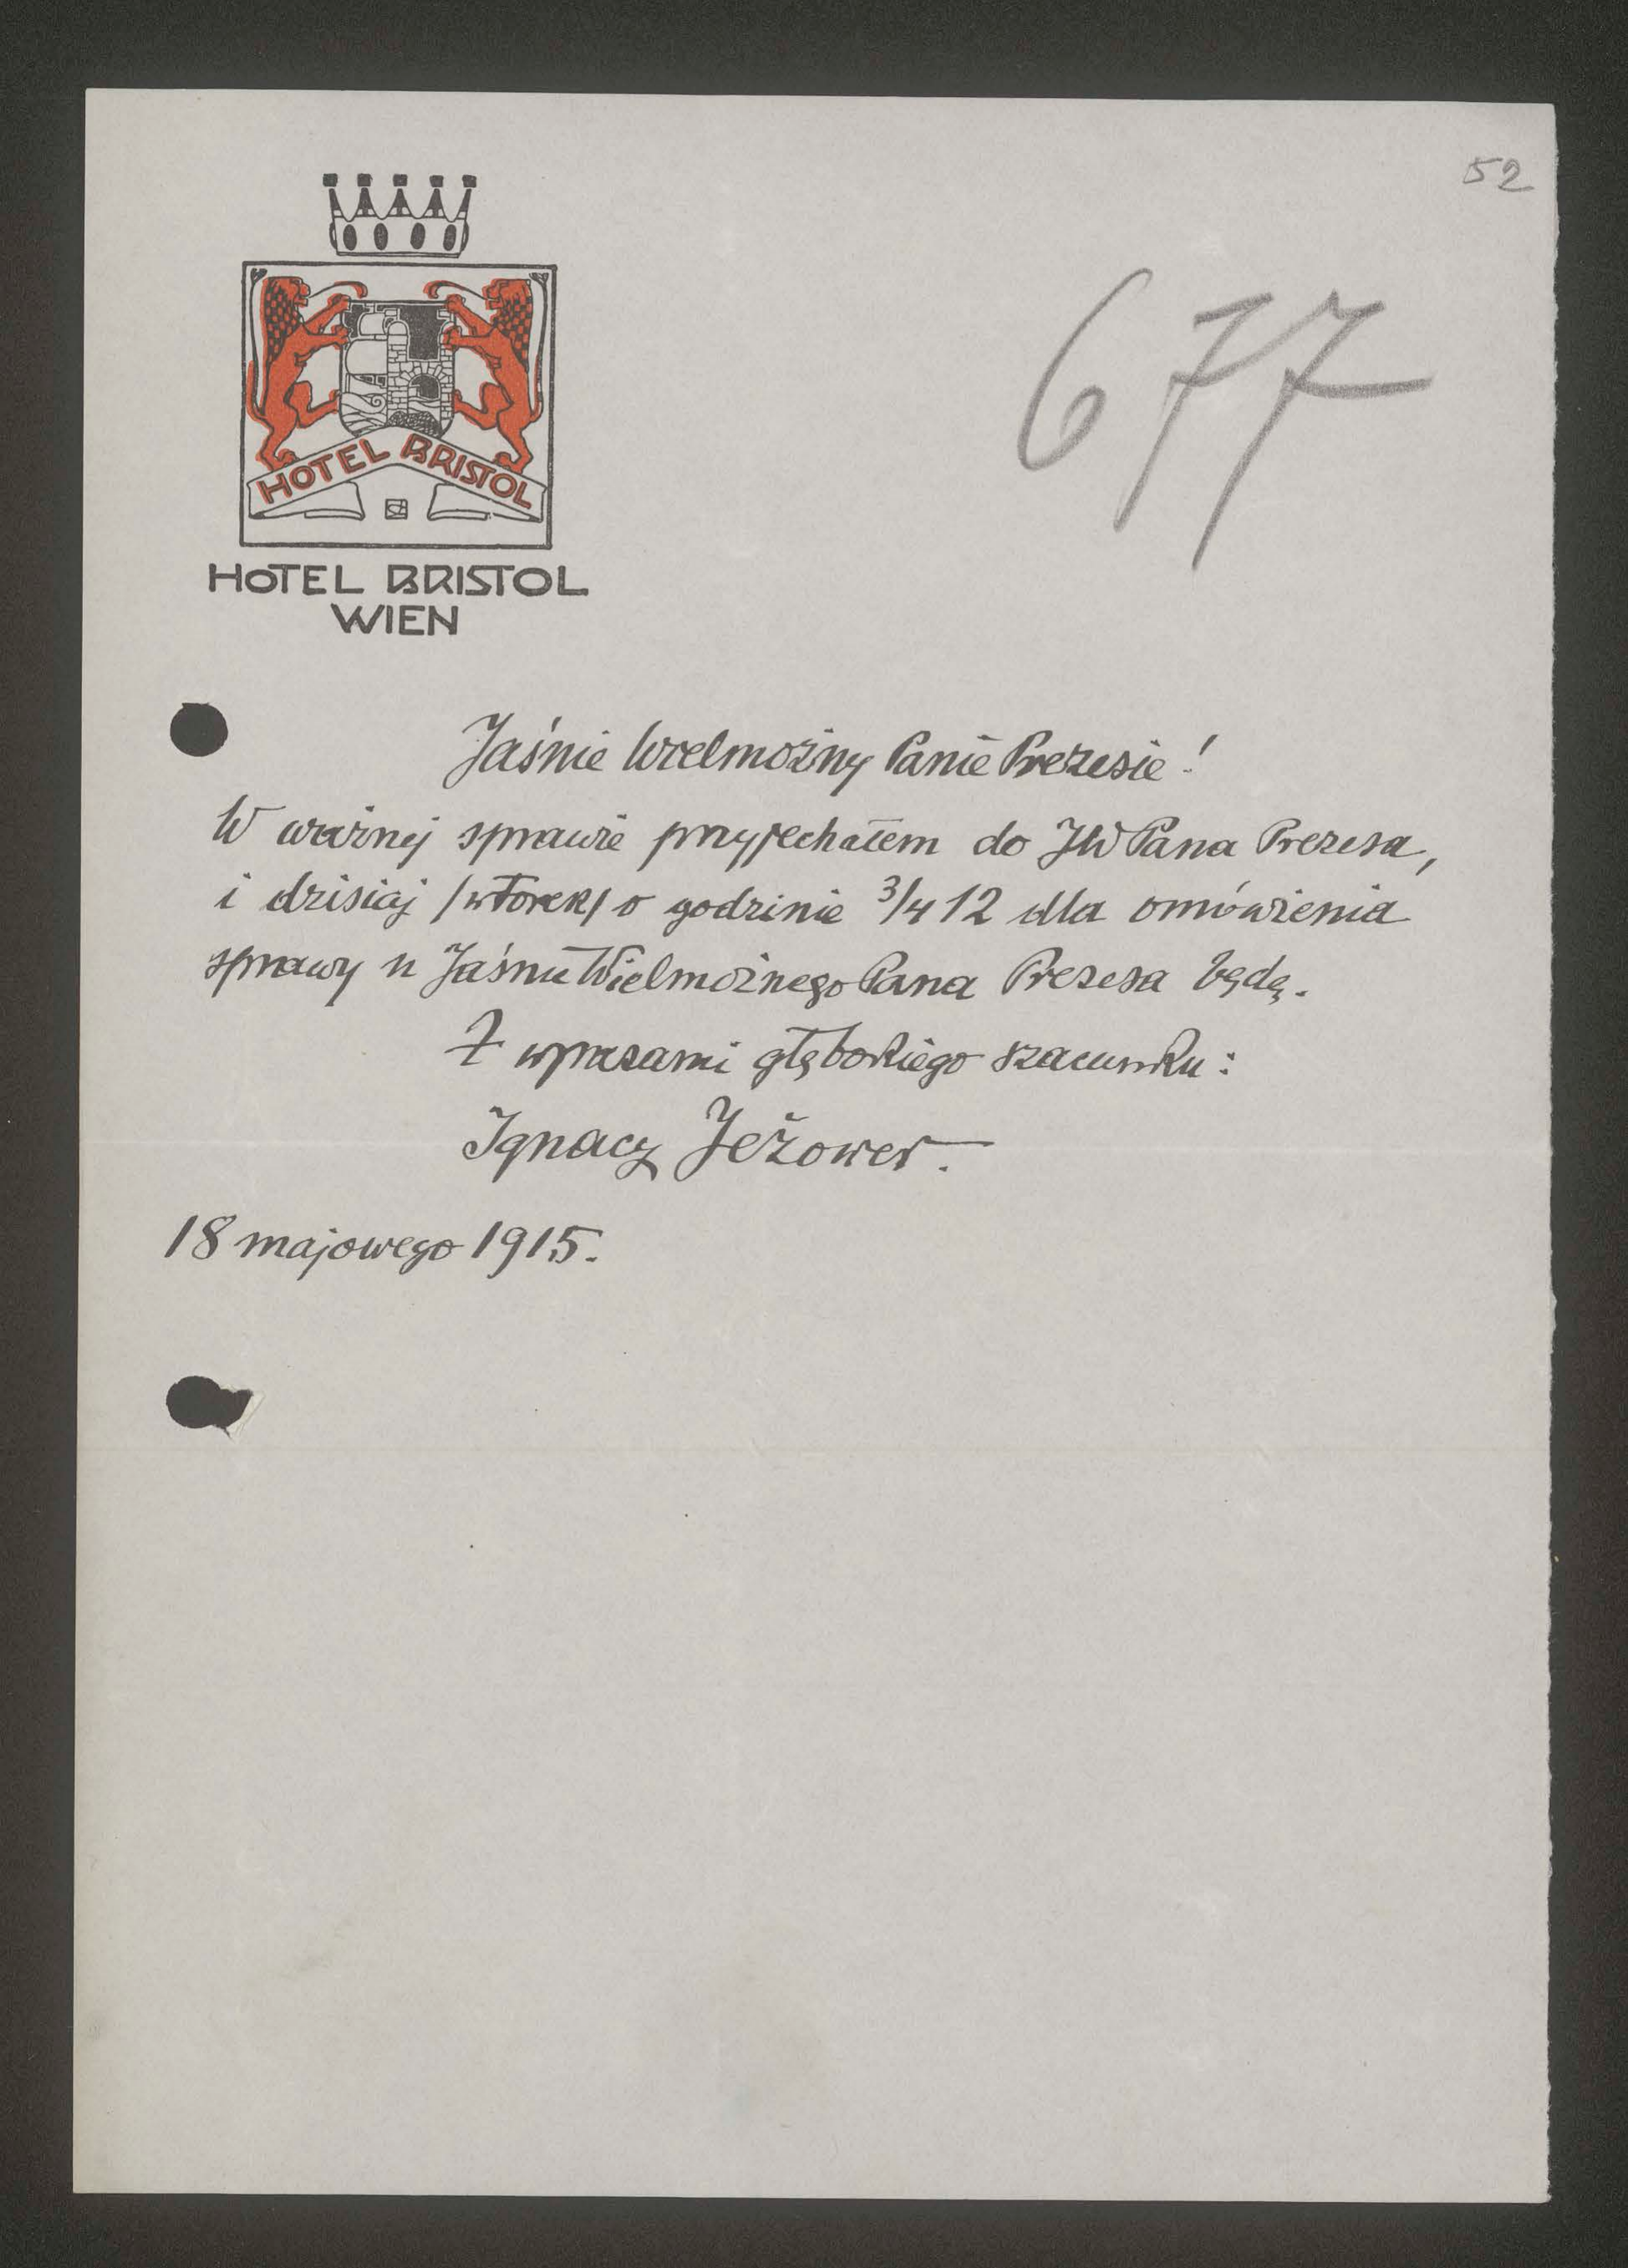 52
677
HOTEL BRISTOL
HOTEL BRISTOL
WIEN
Jaśnie Wielmożny Panie Prezesie!
W ważnej sprawie przyjechałem do JW Pana Prezesa,
i dzisiaj /wtorek/ o godzinie 3/4 12 dla omówienia
sprawy u Jaśnie Wielmożnego Pana Prezesa będę.
Z wyrazami głębokiego szacunku:
Ignacy Jeżower.
18 majowego 1915.